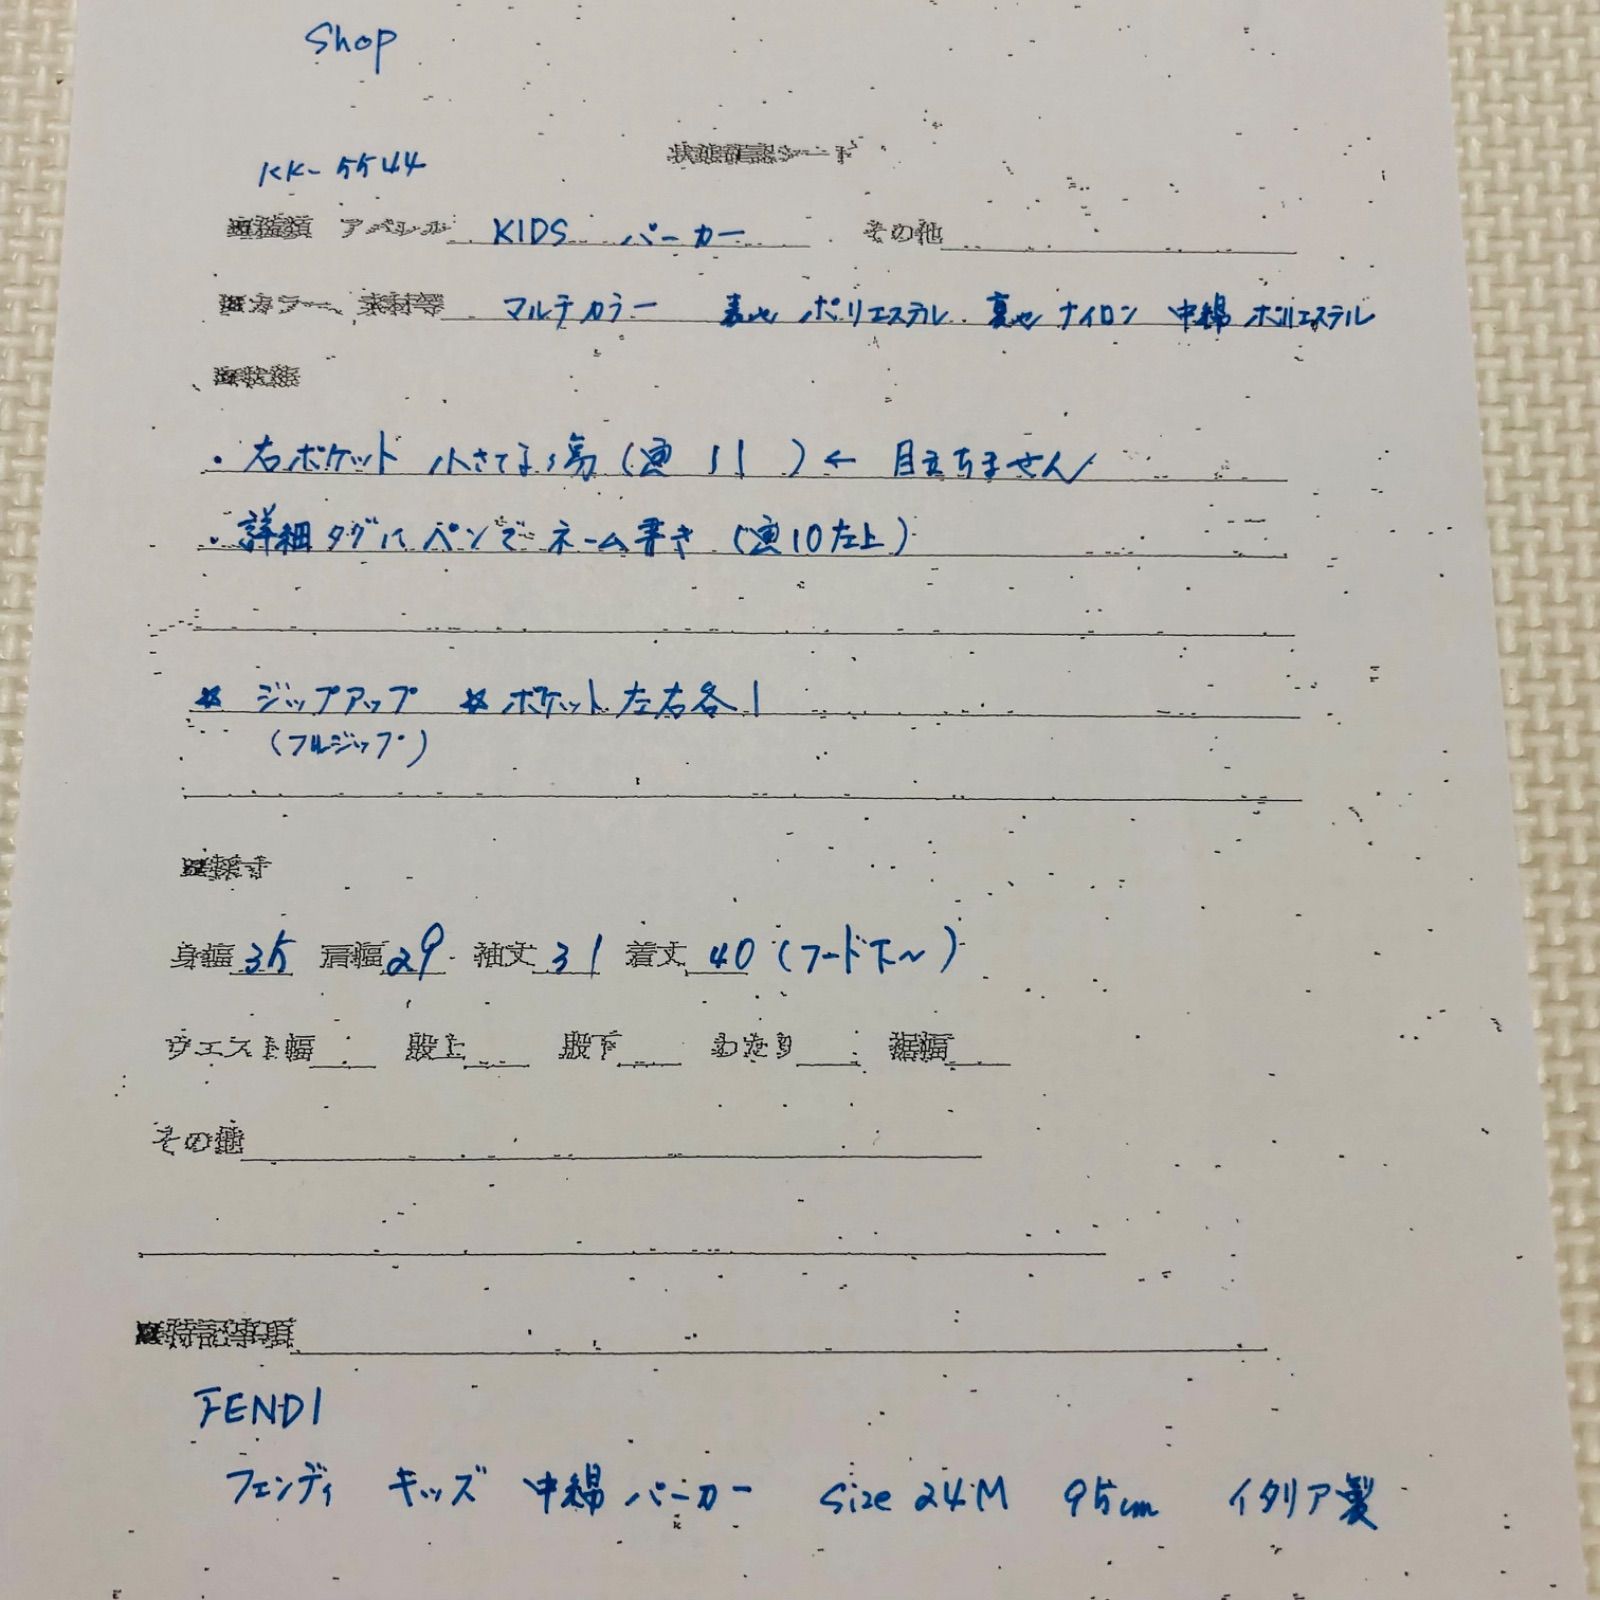 Shop
状態確認シート
KK-5544
■種類 アパレル KIDS パーカー その他
■カラー、素材等 マルチカラー 表地 ポリエステル 裏地 ナイロン 中綿 ポリエステル
■状態
・右ポケット 小さな傷(画 11 )← 目立ちません
・詳細タグにペンでネーム書き (画10左上)
☆ ジップアップ ☆ ポケット 左右各1
(フルジップ)
■採寸
身幅 35 肩幅 29 袖丈 31 着丈 40 (フード下~)
ウエスト幅 股上 股下 わたり 裾幅
その他
■特記事項
FENDI
フェンディ キッズ 中綿 パーカー size 24M 95cm イタリア製